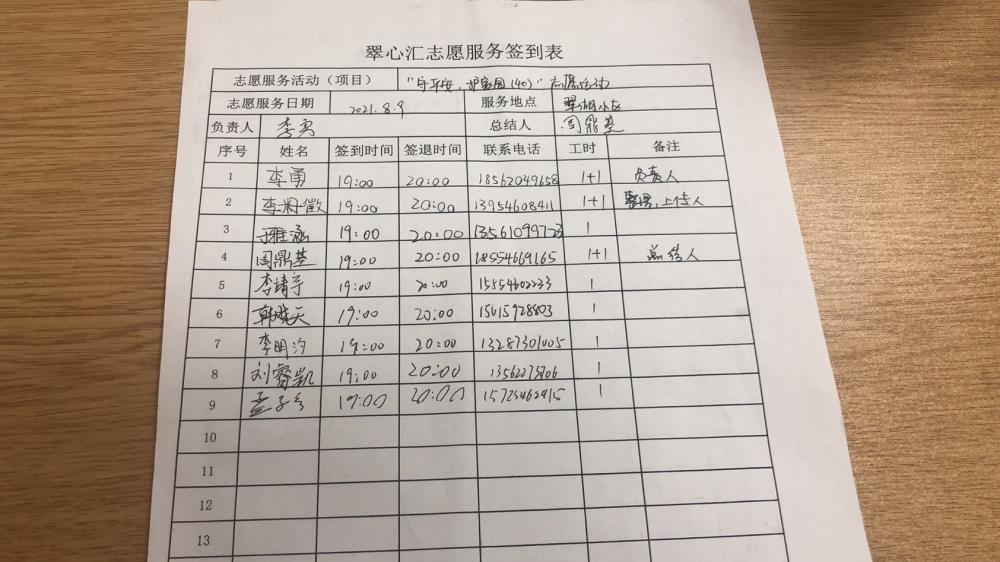 翠心汇志愿服务签到表
志愿服务活动（项目） "守平安，护家园(40)"志愿活动
志愿服务日期 2021.8.9 服务地点 翠湖小区
负责人 李勇 总结人 闫鼎基
序号 姓名 签到时间 签退时间 联系电话 工时 备注
1 李勇 19:00 20:00 18562049658 1+1 负责人
2 李籽徵 19:00 20:00 13954608411 1+1 上传人
3 19:00 20:00 13561099723 1
4 闫鼎基 19:00 20:00 18554669165 1+1 总结人
5 李靖宇 19:00 20:00 15554602233 1
6 韩晓天 19:00 20:00 15615928803 1
7 李明汐 19:00 20:00 13287301005 1
8 刘睿凯 19:00 20:00 1
9 孟子 19:00 20:00 15725462915 1
10
11
12
13